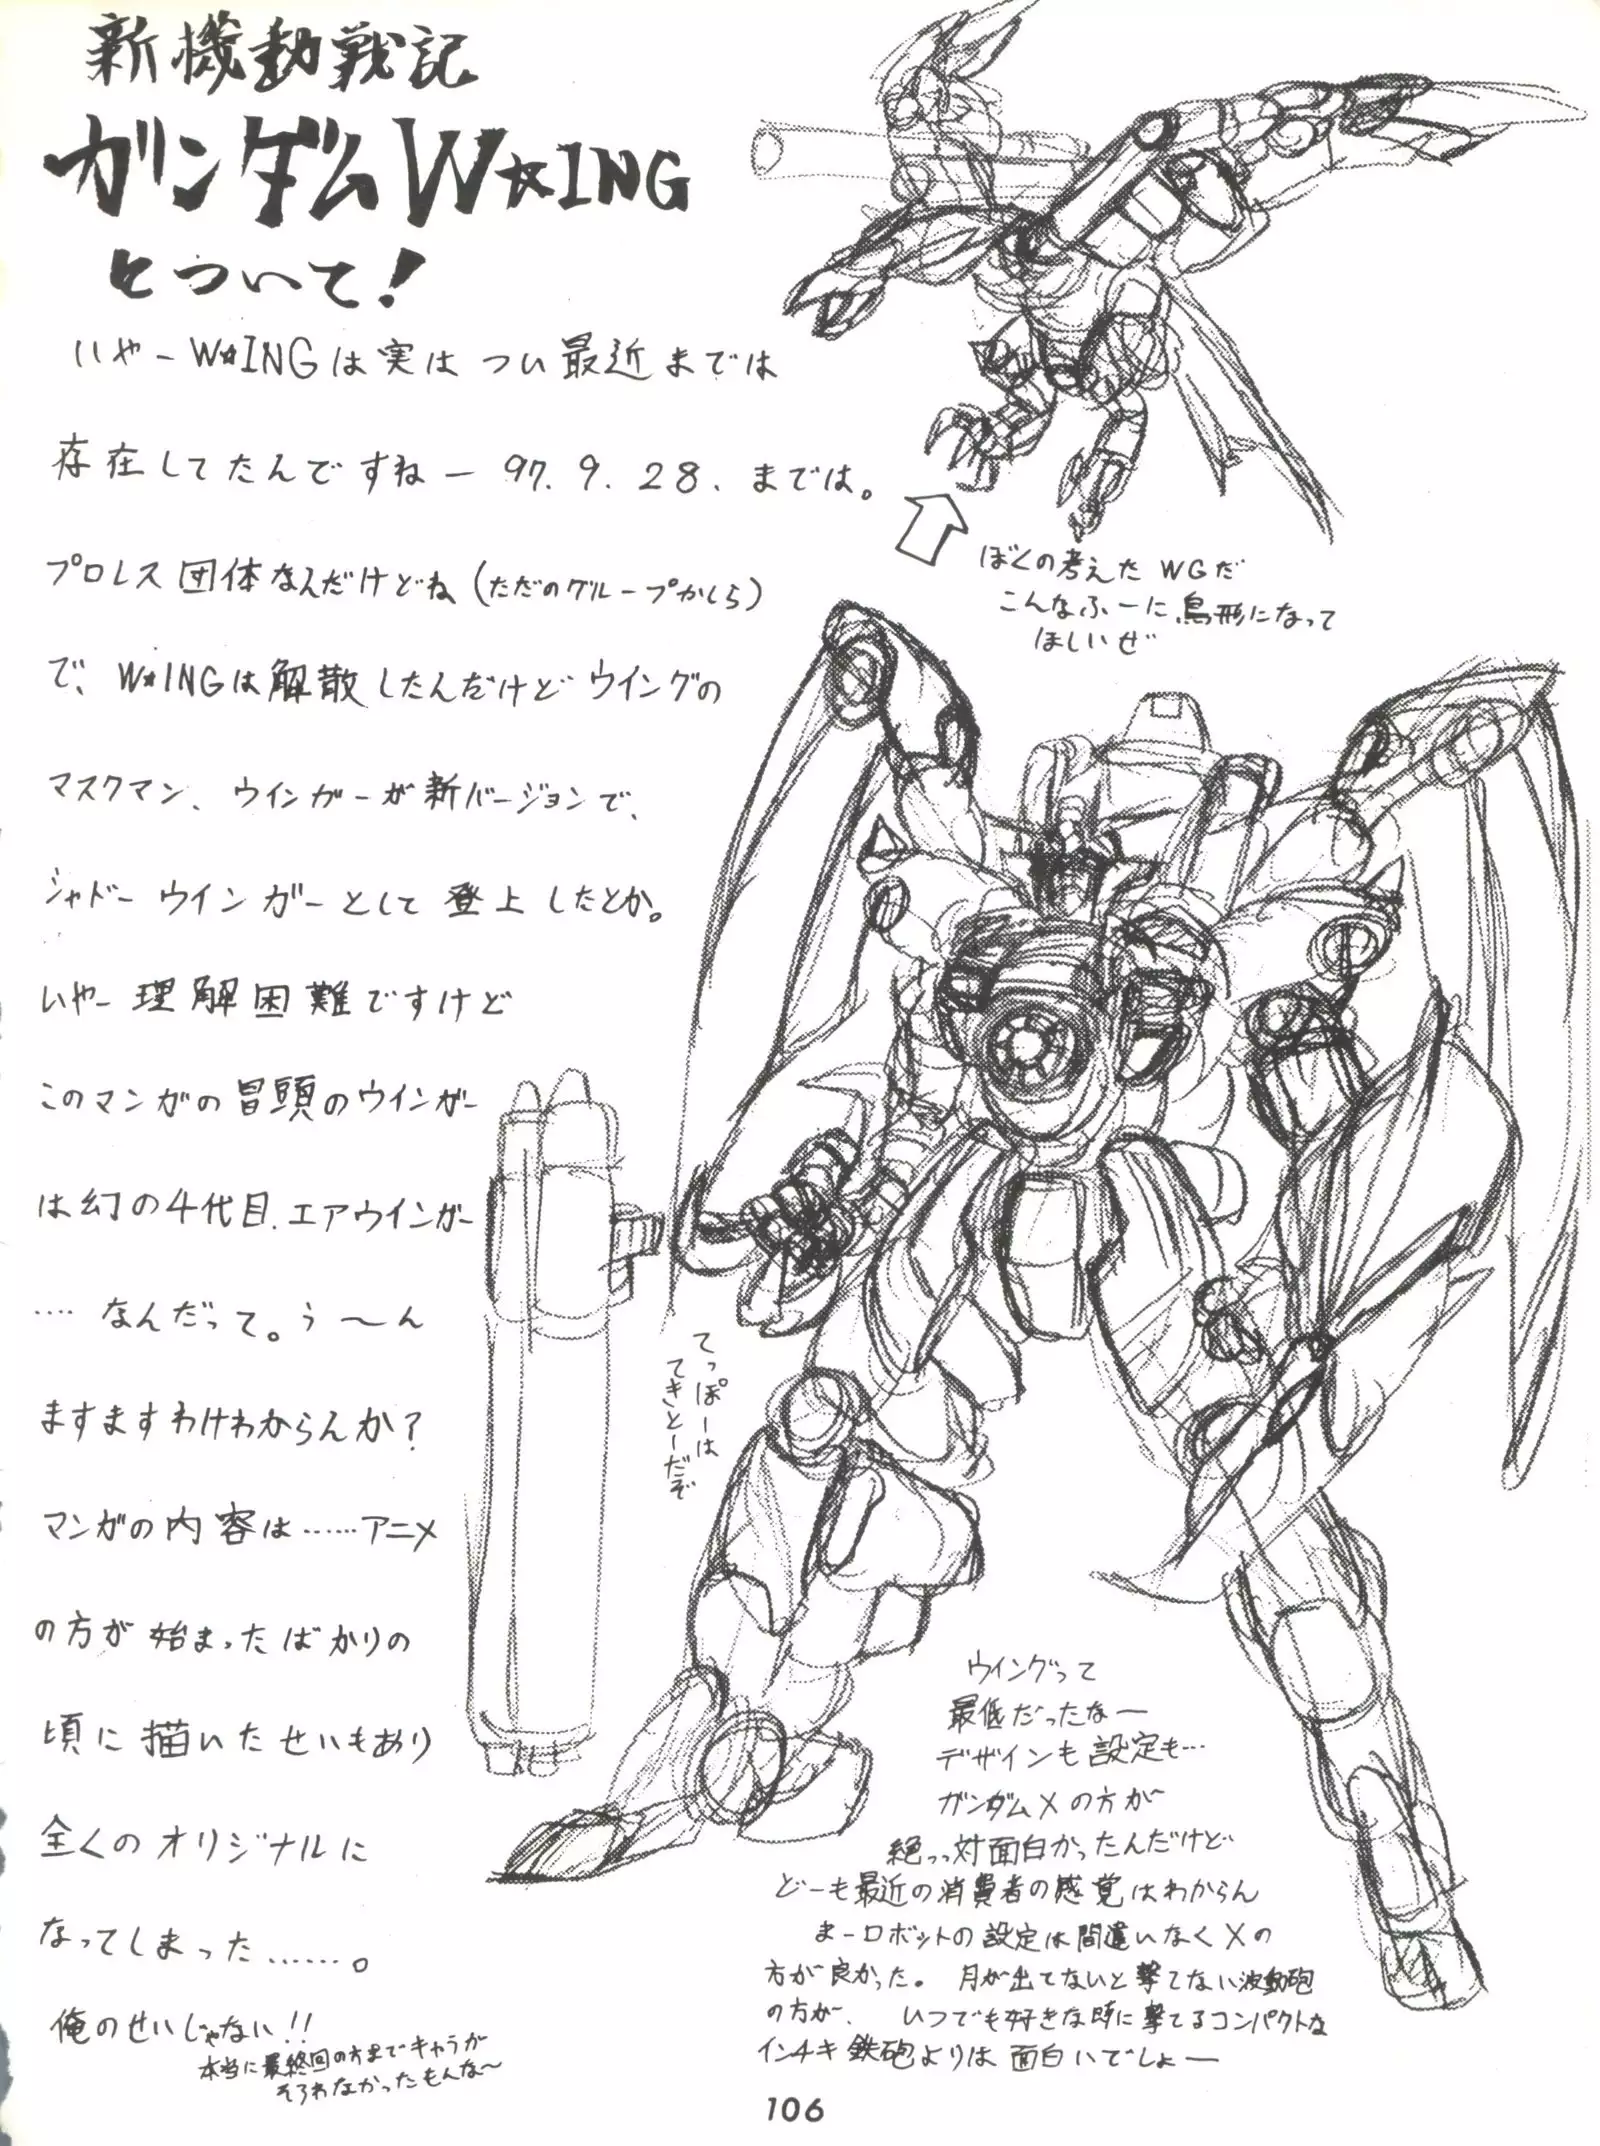 新機動戦記
ガンダムW☆ING
について!
いやーW☆INGは実はつい最近までは
存在してたんですねー97.9.28.までは。
プロレス団体なんだけどね(ただのグループかしら)
で、W☆INGは解散したんだけどウイングの
マスクマン、ウインガーが新バージョンで、
シャドーウインガーとして登上したとか。
いやー理解困難ですけど
このマンガの冒頭のウインガー
は幻の4代目.エアウインガー
‥‥なんだって。う〜ん
ますますわけわからんか?
マンガの内容は……アニメ
の方が始まったばかりの
頃に描いたせいもあり
全くのオリジナルに
なってしまった……。
俺のせいじゃない!!
本当に最終回の方までキャラが
そろわなかったもんな〜
ぼくの考えたWGだ
こんなふーに鳥形になって
ほしいぜ
てっぽーは
てきとーだぞ
ウイングって
最低だったなー
デザインも設定も…
ガンダムXの方が
絶っ対面白かったんだけど
どーも最近の消費者の感覚はわからん
まーロボットの設定は間違いなくXの
方が良かった。月が出てないと撃てない波動砲
の方が、いつでも好きな時に撃てるコンパクトな
インチキ鉄砲よりは面白いでしょー
106